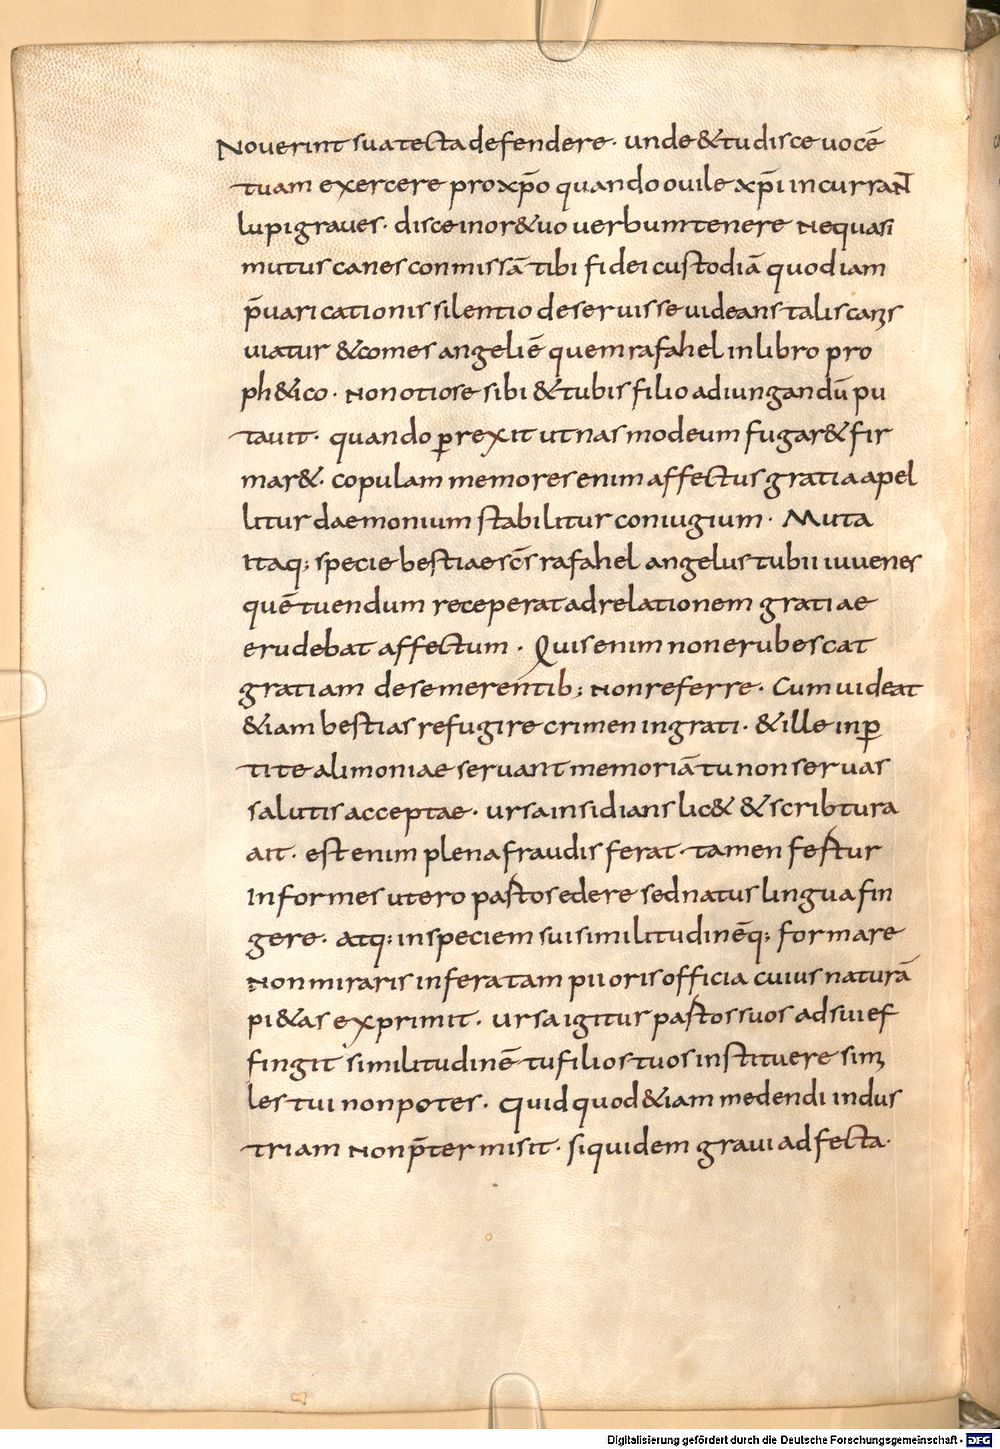 Nouerint sua tecta defendere · unde & tu disce uocē
tuam exercere pro xp̄o quando ouile xp̄i incurraN̄
lupi graues · disce in or& uo uerbum tenere ne quasi
mutus canes conmissā tibi fidei custodiā quod iam
p̄uaricationis silentio deseruisse uideans talis canis
uiatur & comes angeli ē quem rafahel in libro pro
ph&ico · non otiose sibi & tubis filio adiungandū pu
tauit · quando ꝑrexit ut nas modeum fugar& fir
mar& · copulam memores enim affectus gratia apel
litur daemonium stabilitur coniugium · Muta
Itaq; specie bestiae sc̄s rafahel angelus tubii iuuenes
quē tuendum receperat ad relationem gratiae
erudebat affectum · Quis enim non erubescat
gratiam de se merentib; non referre · Cum uideat
&iam bestias refugire crimen ingrati · & ille inꝑ
tite alimoniae seruant memoriā tu non seruas
salutis acceptae · ursa insidians lic& & scribtura
ait · est enim plena fraudis ferat · tamen festur
Informes utero pastos edere sed natus lingua fin
gere · atq; in speciem sui similitudinēq; formare
Non miraris in fera tam pii oris officia cuius naturā
pi&as exprimit · ursa igitur pastos suos ad sui ef
fingit similitudinē tu filios tuos instituere simi
les tui non potes · quid quod &iam medendi indus
triam non p̄termisit · siquidem graui adfecta ·
Digitalisierung gefördert durch die Deutsche Forschungsgemeinschaft - DFG